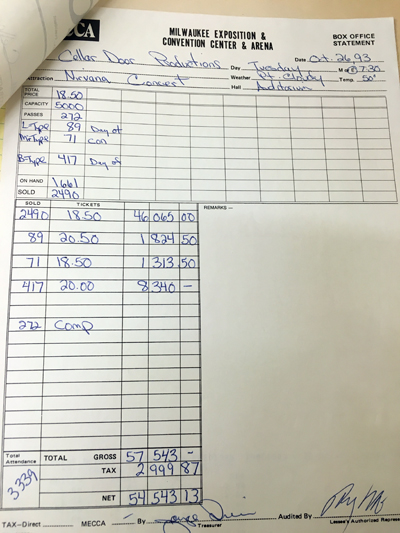 MECCA
MILWAUKEE EXPOSITION &
CONVENTION CENTER & ARENA
BOX OFFICE
STATEMENT
Cellar Door Productions Day Tuesday Date Oct. 26, 93
Attraction Nirvana Concert Weather Pt. Cloudy M @ 7:30
Hall Auditorium Temp. 50°
TOTAL PRICE 18.50
CAPACITY 5000
PASSES 272
L-Type 89 Day of
71 con
B-Type 417 Day of
ON HAND 1661
SOLD 2490
SOLD TICKETS REMARKS —
2490 18.50 46 065 00
89 20.50 1 824 50
71 18.50 1 313 50
417 20.00 8 340 -
272 Comp
Total Attendance 3339
TOTAL GROSS 57 543 -
TAX 2 999 87
NET 54 543 13
TAX-Direct MECCA By Treasurer Audited By Lessee's Authorized Repres